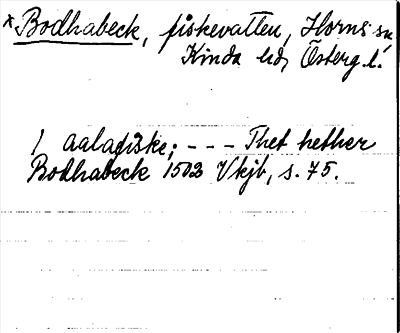 *Bodhabeck, fiskevatten, Horns sn
Kinda hd, Österg. l.
1 aalafiske; - - - Thet hether
Bodhabeck 1502 Vkjb, s. 75.